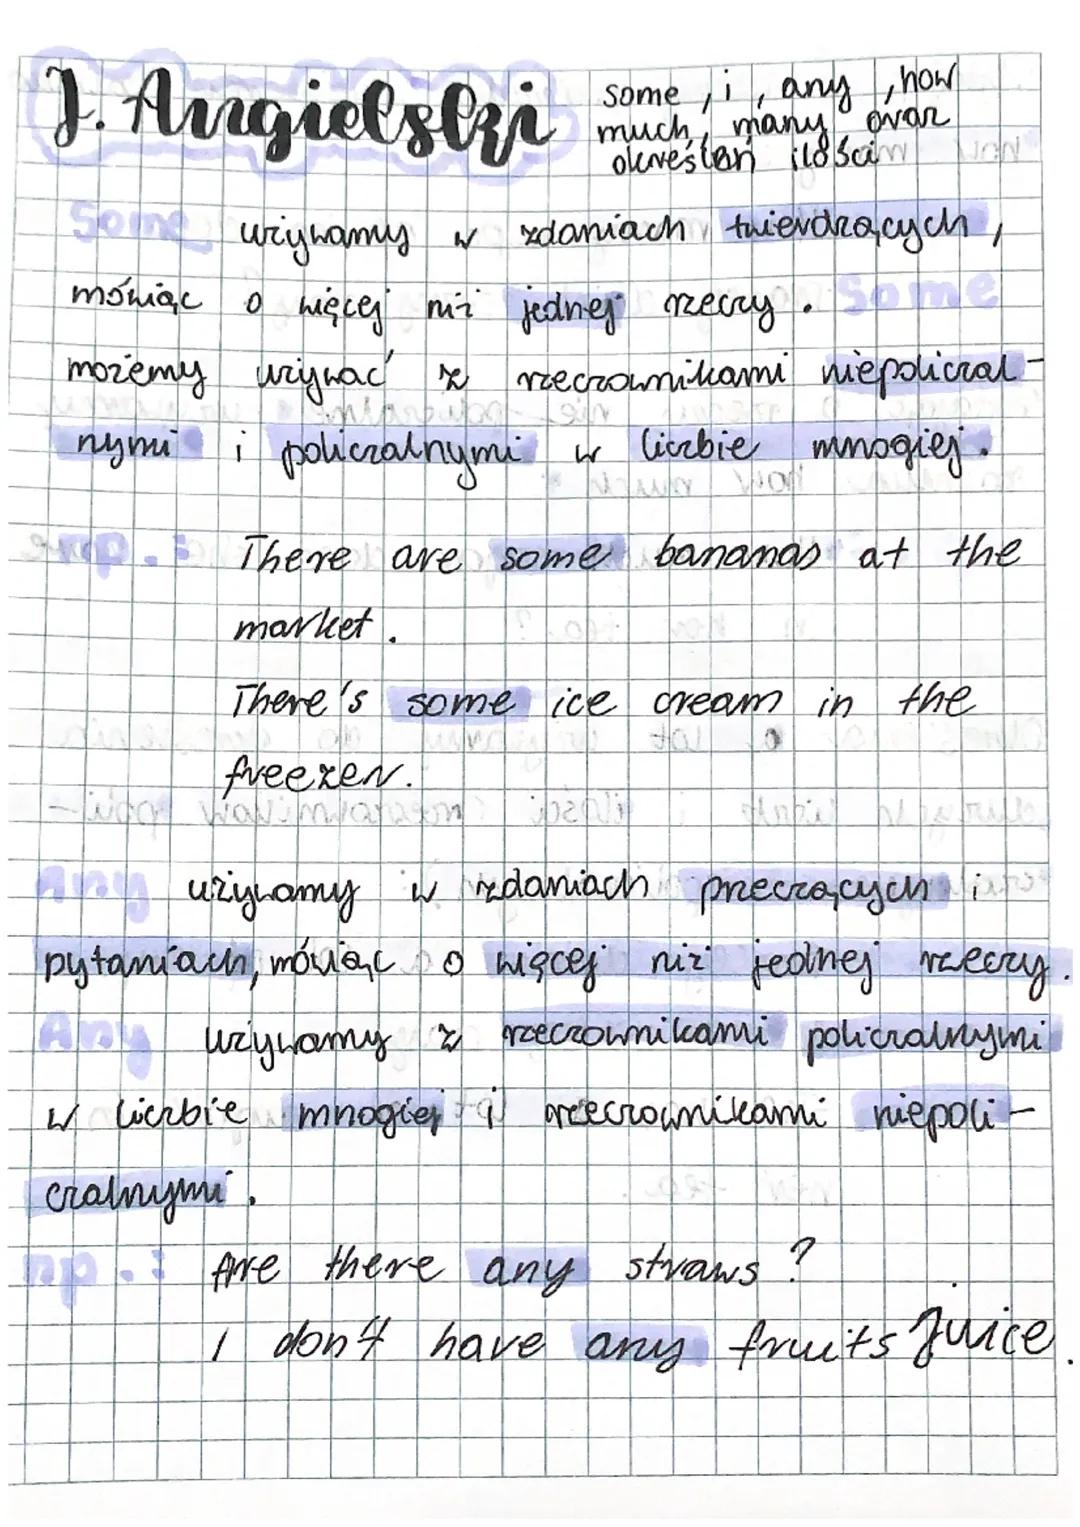 J. Angielski
some, i, any, how
much, many oraz
określeń ilościm
Some używamy w zdaniach twierdzących,
mówiąc o więcej niż jednej rzeczy. Some
możemy używać z rzeczownikami niepoliczal-
nymi i policzalnymi w liczbie mnogiej.
np.: There are some bananas at the
market.
There's some ice cream in the
freezer.
Any używamy w zdaniach przeczących i
pytaniach, mówiąc o więcej niż jednej rzeczy.
Any używamy z rzeczownikami policzalnymi
w liczbie mnogiej i rzeczownikami niepoli-
czalnymi.
np.: Are there any straws?
I don't have any fruits juice.